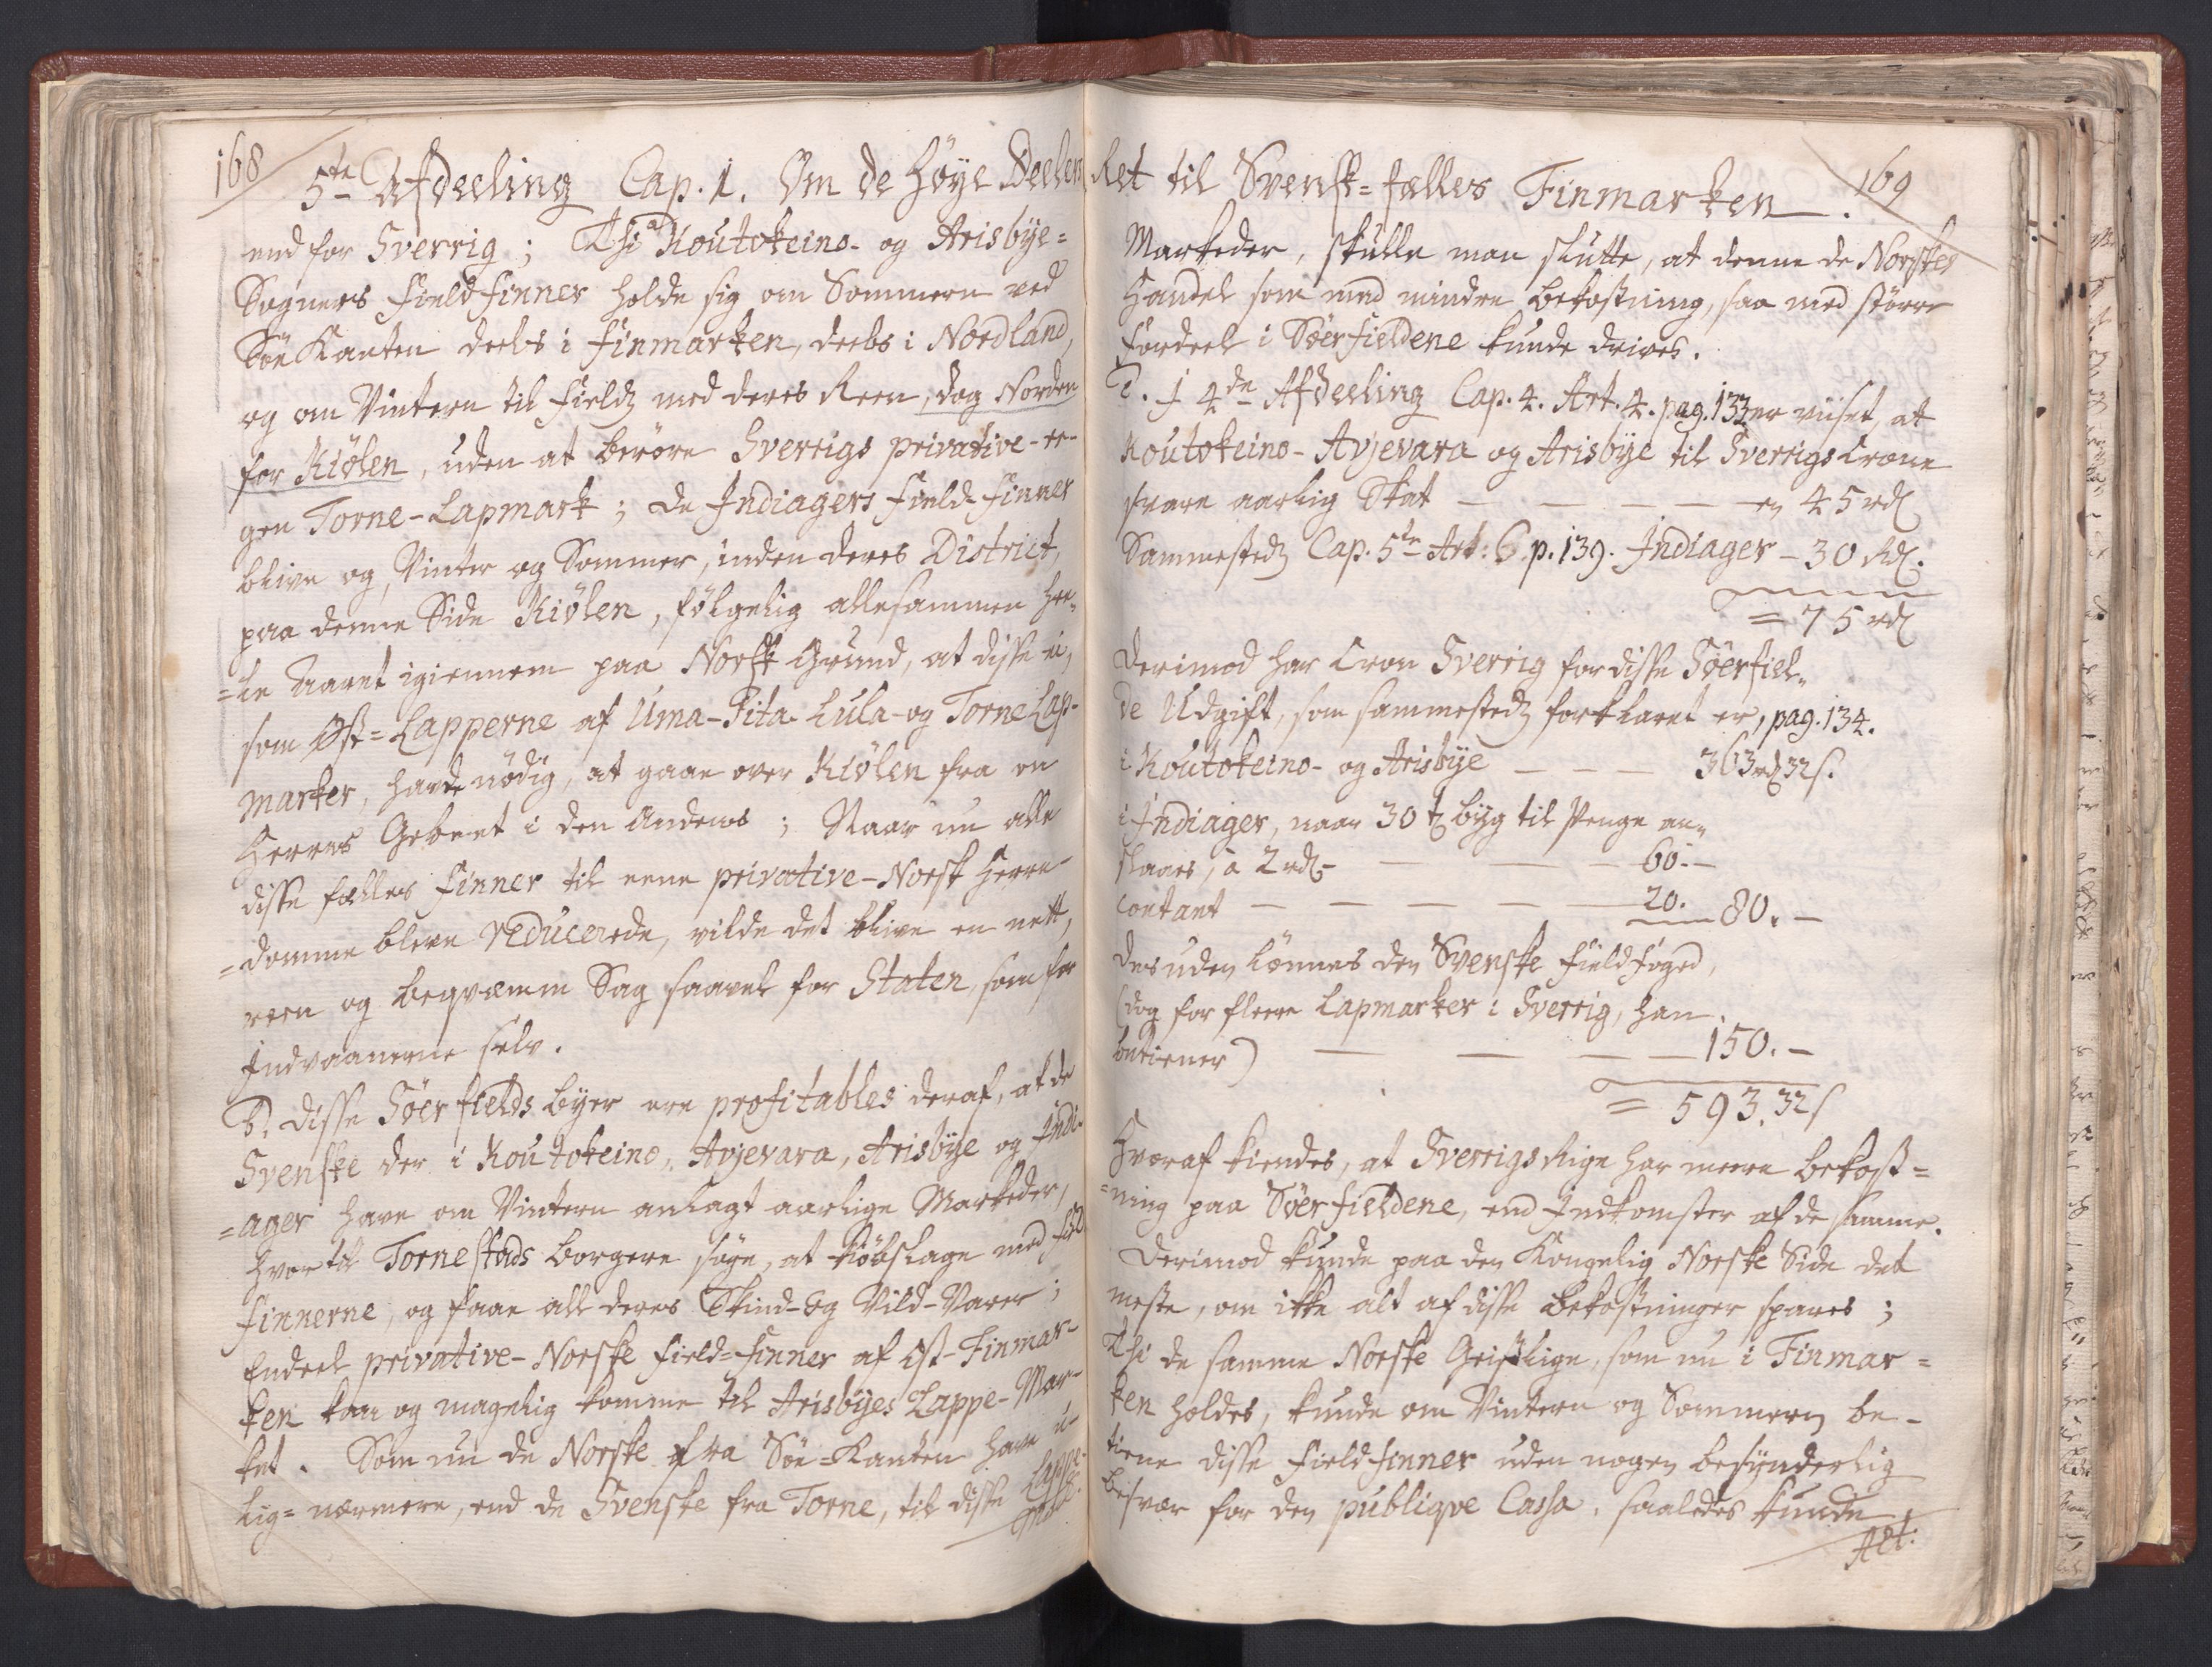 168
5te Afdeeling Cap. 1. Om de Høye Deelers
end for Sverrig; Thi a Koutokeino- og Arisbÿe=
Sogners Field Finner holde sig om Sommeren ved
Söe Kanten deels i Finmarken, deels i Nordland,
og om Vinteren til Fields med deres Reen, dog Norden
for Kiölen, uden at beröre Sverrigs privative-ee-
gen Torne-Lapmark; De Indiagers Field-Finner
blive og, Vinter og Sommer, inden deres District,
paa denne Side Kiölen, fölgelig allesammen hee-
=le Aaret igiennem paa Norsk Grund, at disse ei,
som Øst=Lapperne af Uma-Pita- Lula- og Torne Lap-
marker, havde nödig, at gaae over Kiölen fra en
Herres Gebeet i den Andens; Naar nu alle
disse fælles Finner til eene privative-Norsk Herre-
=domme bleve reducerede, vilde det blive en nett,
reen og beqvæmm Sag saavel for Staten, som for
Indvaanerne selv.
B. Disse Söer fields Byer ere profitables deraf, at de
Svenske der i Koutokeino, Avjevara, Arisbÿe og Indi-
=ager have om Vinteren anlagt aarlige Markeder,
hvor til Torne stads Borgere söge, at kiöbslage med Field
Finnerne, og faae all deres Skind- og Vild-Varer;
Endeel privative-Norske Field=Finner af Øst-Finmar-
ken kan og magelig komme til Arisbÿes Lappe-Mar-
ket. Som nu de Norske fra Söe-Kanten have u-
lig= nærmere, end de Svenske fra Torne, til disse Lappe-
Mar-
Ret til Svensk=fælles Finmarken. 169
Markeder, skulle man slutte, at denne de Norskes
Handel som med mindre bekostning, saa med större
Fordeel i Söerfieldene kunde drives.
C. I 4de Afdeeling Cap. 4. Art. 4. pag. 133 er viiset, at
Koutokeino- Avjevara og Arisbÿe til Sverrigs Crone
svare aarlig Skat — — — — — er 45 rdl
Sammesteds Cap. 5te Art: 6. p. 139. Indiager — 30 Rdl.
= 75 rdl
Derimod har Cron Sverrig for disse Söerfiel-
de Udgift, som sammesteds forklaret er, pag. 134.
i Koutokeino- og Arisbÿe — — — 363 rdl 32 s.
i Indiager, naar 30 t Byg til Penge an-
slaaes, a 2 rdl — — — 60. —
Contant — — — — — 20. — 80. —
Desuden Lönnes den Svenske Field Foged,
(dog for fleere Lapmarker i Sverrig, han
betiener) — — — — 150. —
= 593. 32 s
Hvoraf kiendes, at Sverrigs Rige har meere bekost=
=ning paa Söerfieldene, end Indkomster af de samme.
Derimod kunde paa den Kongelig Norske Side det
meste, om ikke alt af disse Bekostninger spares;
Thi de samme Norske Geistlige, som nu i Finmar=
ken holdes, kunde om Vinteren og Sommeren be-
tiene disse Field-Finner uden nogen besÿnderlig
besvær for den publiqve Cassa. saaledes kunde
Alt.